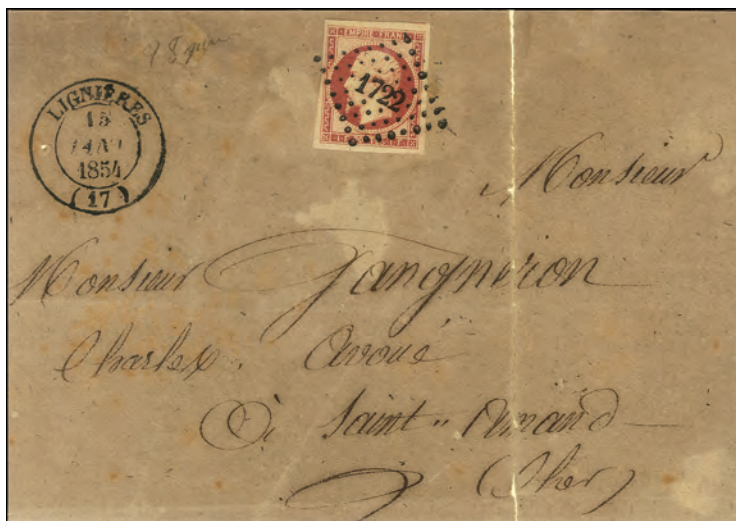 LIGNIÈRES
15
JANV
1854
(17)
EMPIRE FRANC
1722
Monsieur
Monsieur
Charles. Avoué
à Saint-Amand
(Cher)